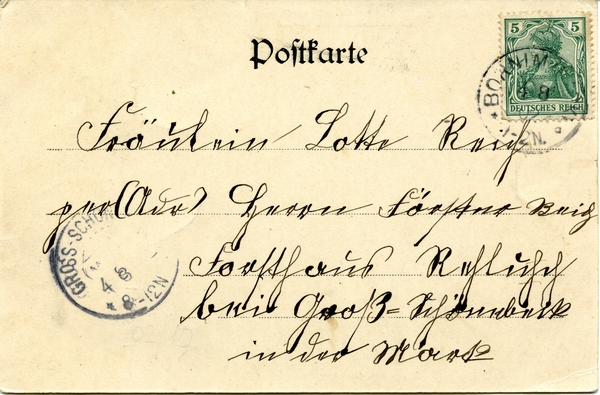 Postkarte
5 5
DEUTSCHES REICH
BORNIM
4 8
1-2N.
Fräulein Lotte Reich
per (Adr) Herrn Förster Reich
Forsthaus
bei Groß-Schönebeck
in der Mark
GROSS-SCHÖN
4 8
8-12N